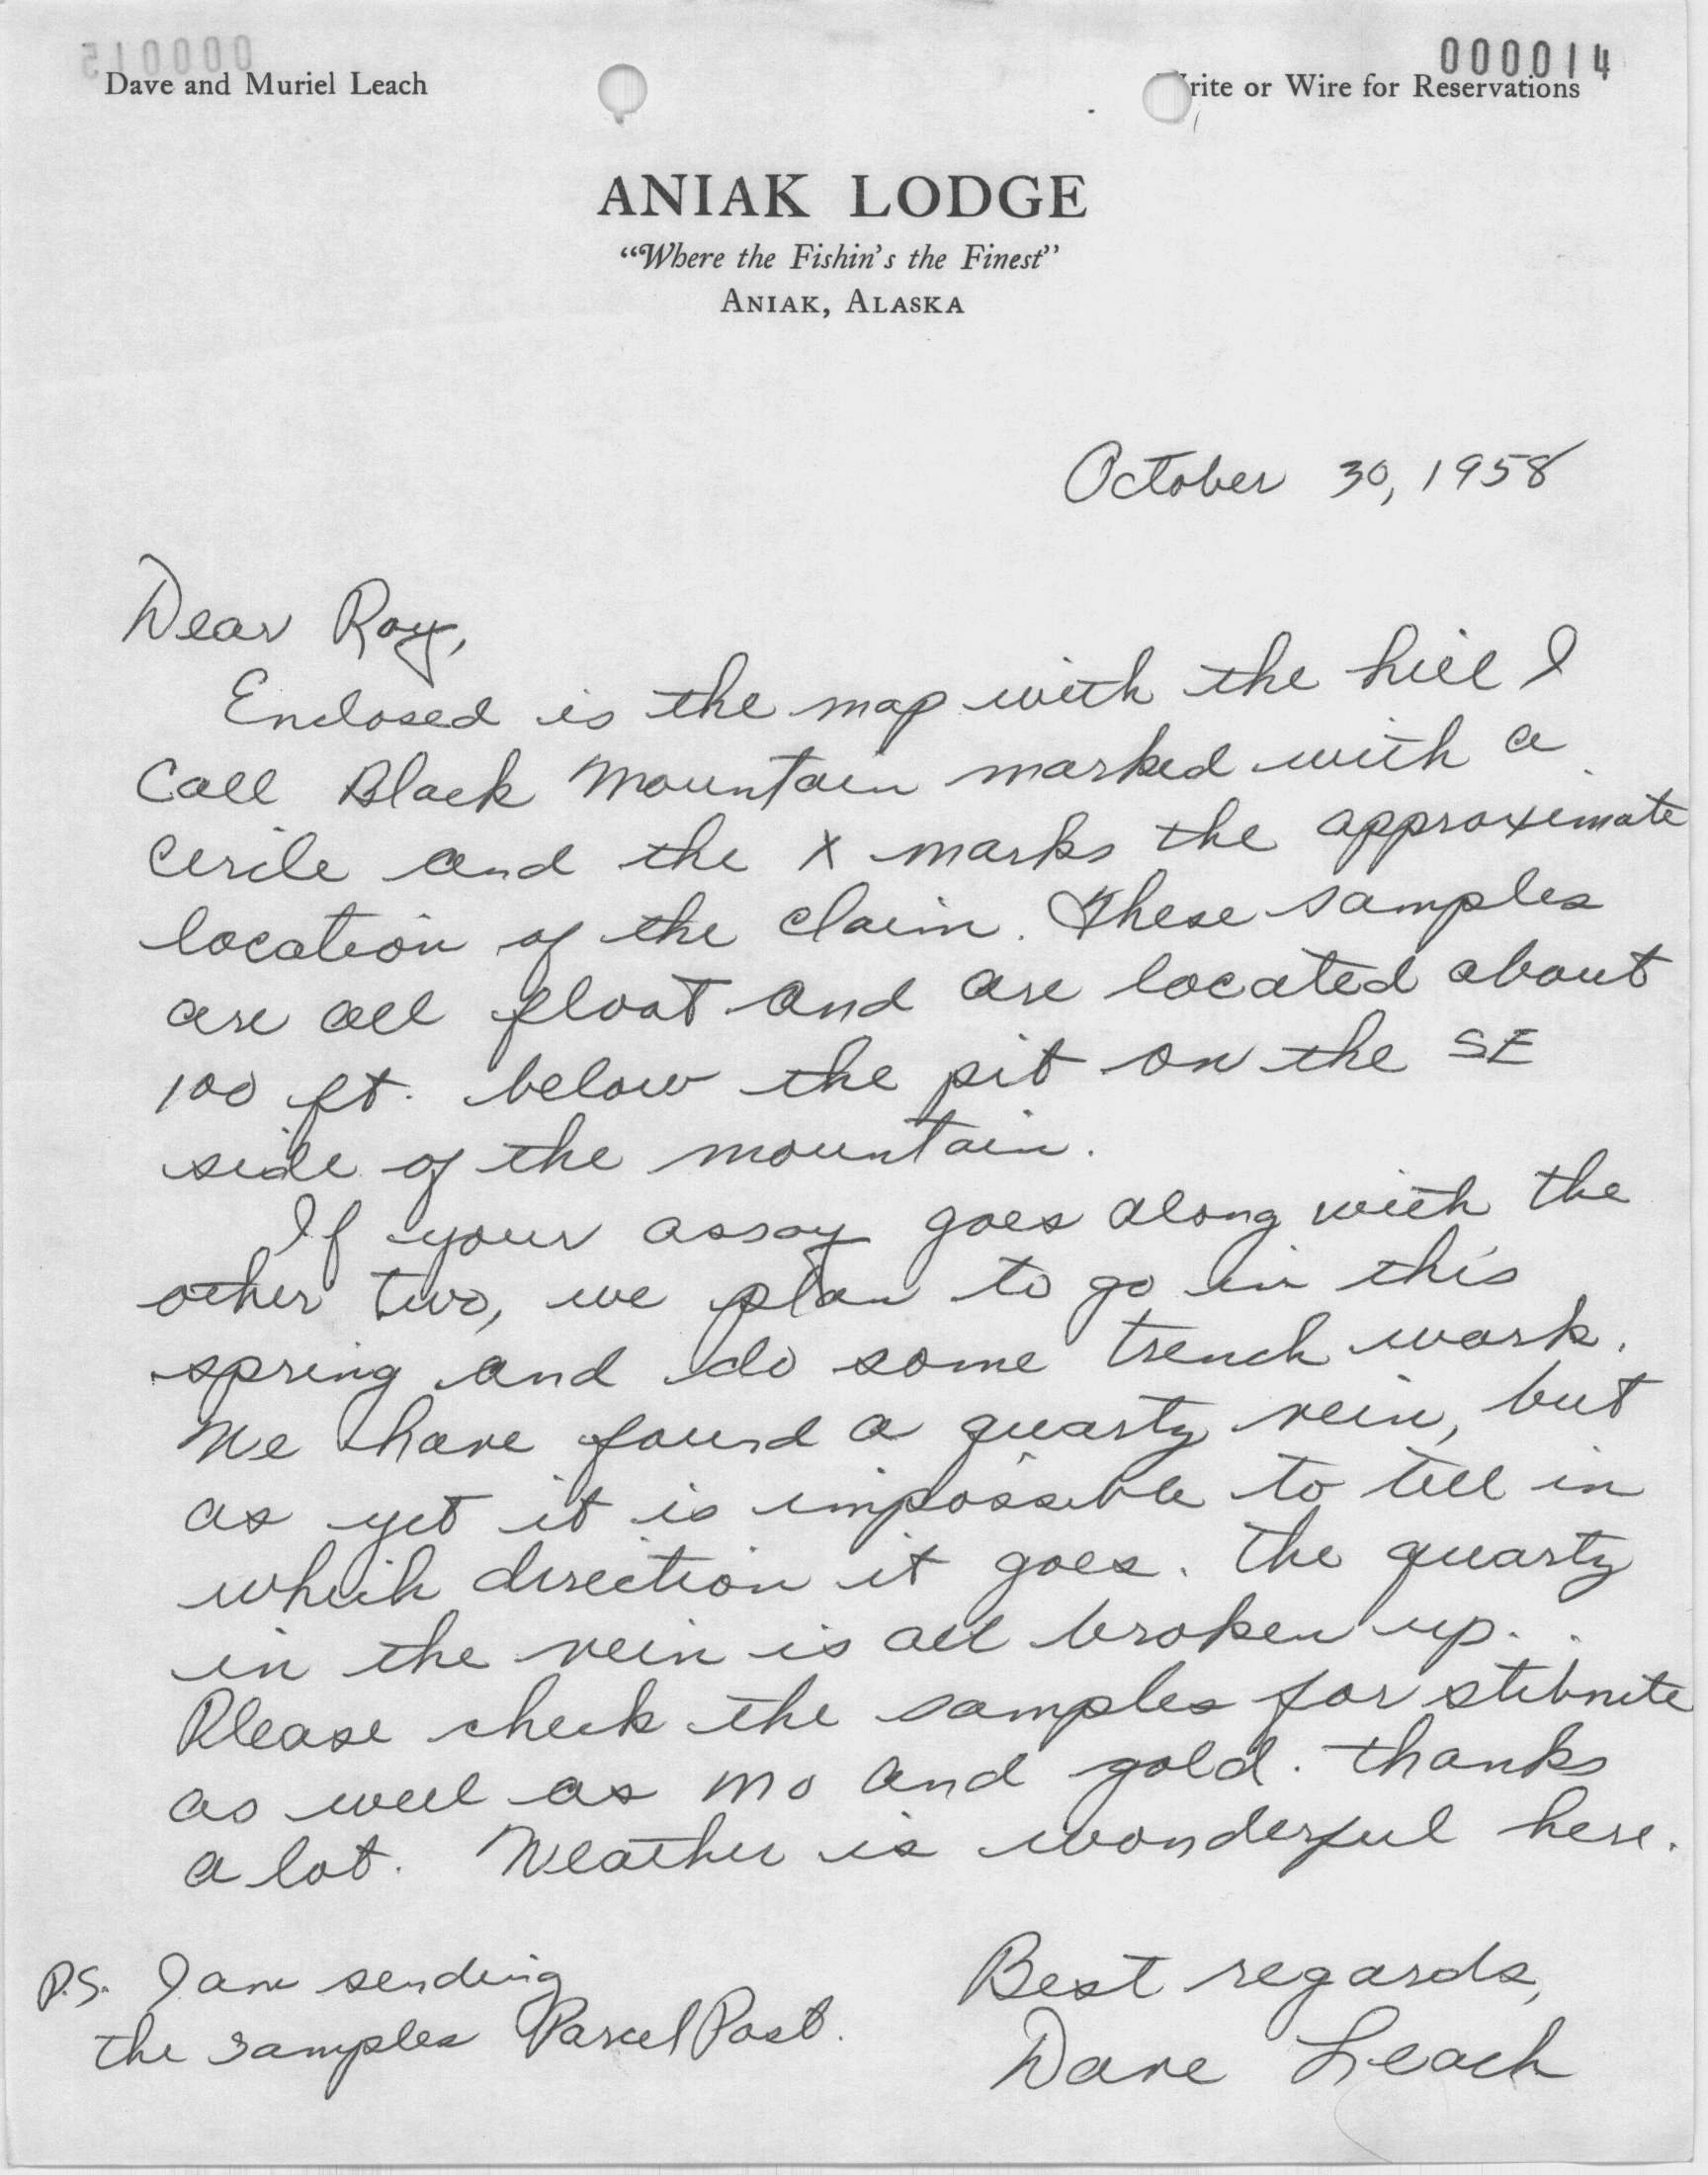 000015
000014
Dave and Muriel Leach
rite or Wire for Reservations
ANIAK LODGE
“Where the Fishin's the Finest”
ANIAK, ALASKA
October 30, 1958
Dear Roy,
Enclosed is the map with the hill I
call Black Mountain marked with a
circle and the X marks the approximate
location of the claim. These samples
are all float and are located about
100 ft. below the pit on the SE
side of the mountain.
If your assay goes along with the
other two, we plan to go in this
spring and do some trench work.
We have found a quartz vein, but
as yet it is impossible to tell in
which direction it goes. The quartz
in the vein is all broken up.
Please check the samples for stibnite
as well as Mo and gold. Thanks
a lot. Weather is wonderful here.
Best regards,
Dave Leach
P.S. I am sending
the samples Parcel Post.